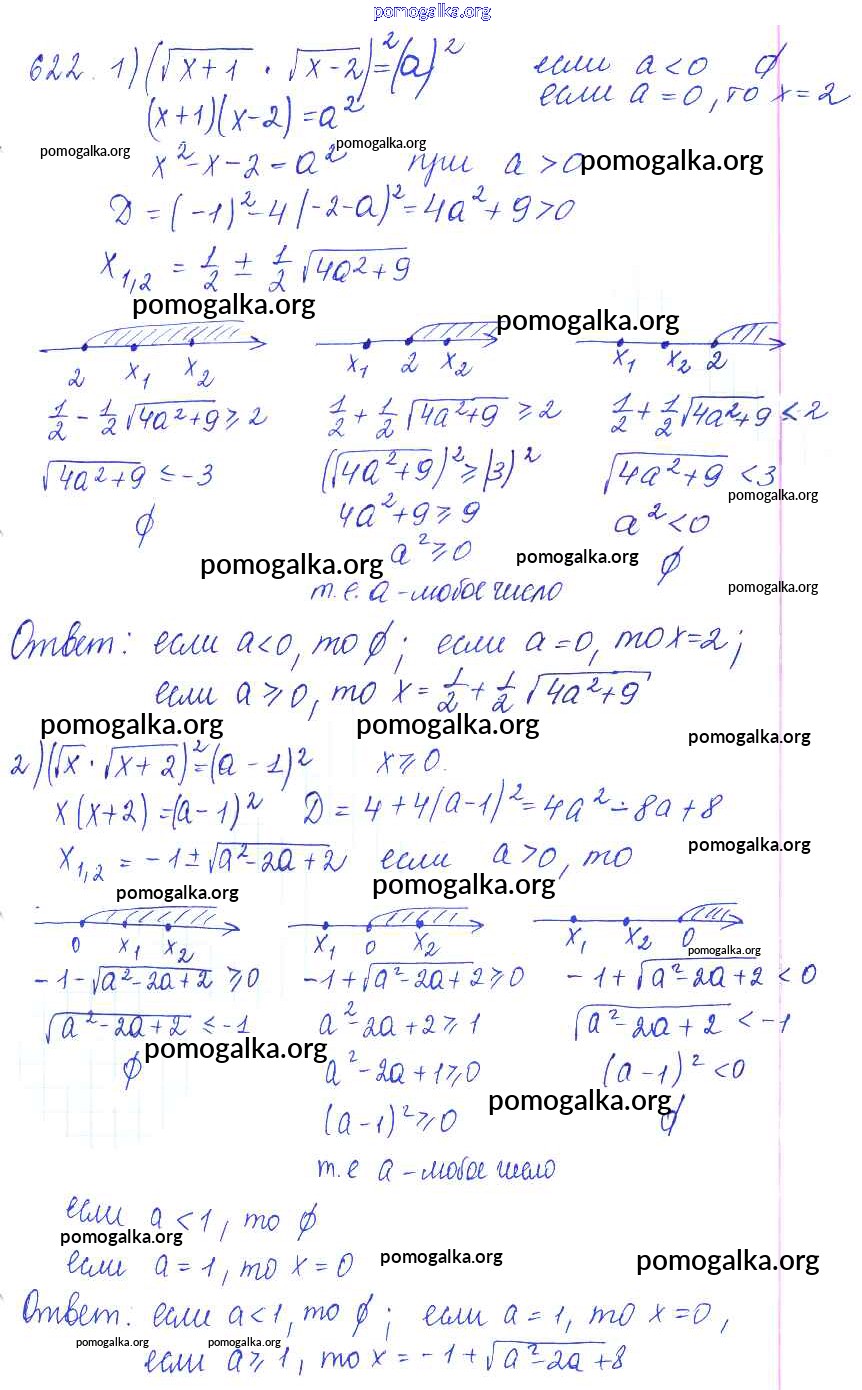 pomogalka.org
622. 1) (√x+1 · √x-2)²=(a)² если a<0 ∅
(x+1)(x-2)=a² если a=0, то x=2
pomogalka.org x²-x-2=a² pomogalka.org при a>0 pomogalka.org
D=(-1)²-4(-2-a)²=4a²+9>0
x₁,₂ = 1/2 ± 1/2 √4a²+9
pomogalka.org pomogalka.org
2 x₁ x₂ x₁ 2 x₂ x₁ x₂ 2
1/2 - 1/2 √4a²+9 ≥ 2 1/2 + 1/2 √4a²+9 ≥ 2 1/2 + 1/2 √4a²+9 < 2
√4a²+9 ≤ -3 (√4a²+9)² ≥ (3)² √4a²+9 < 3
pomogalka.org
∅ 4a²+9 ≥ 9 a² < 0
pomogalka.org a² ≥ 0 pomogalka.org ∅
т.е. a - любое число pomogalka.org
Ответ: если a<0, то ∅; если a=0, то x=2;
если a ≥ 0, то x = 1/2 + 1/2 √4a²+9
pomogalka.org pomogalka.org pomogalka.org
2) (√x · √x+2)²=(a-1)² x ≥ 0.
x(x+2)=(a-1)² D = 4+4(a-1)²=4a²-8a+8
x₁,₂ = -1±√a²-2a+2 если a>0, то pomogalka.org
pomogalka.org pomogalka.org
0 x₁ x₂ x₁ 0 x₂ x₁ x₂ 0
pomogalka.org
-1-√a²-2a+2 ≥ 0 -1+√a²-2a+2 ≥ 0 -1+√a²-2a+2 < 0
√a²-2a+2 ≤ -1 a²-2a+2 ≥ 1 √a²-2a+2 < -1
∅ pomogalka.org a²-2a+1 ≥ 0 (a-1)² < 0
(a-1)² ≥ 0 pomogalka.org ∅
т.е a - любое число
если a < 1, то ∅
pomogalka.org
если a = 1, то x = 0 pomogalka.org pomogalka.org
Ответ: если a<1, то ∅; если a = 1, то x = 0,
pomogalka.org pomogalka.org
если a ≥ 1, то x = -1+√a²-2a+8